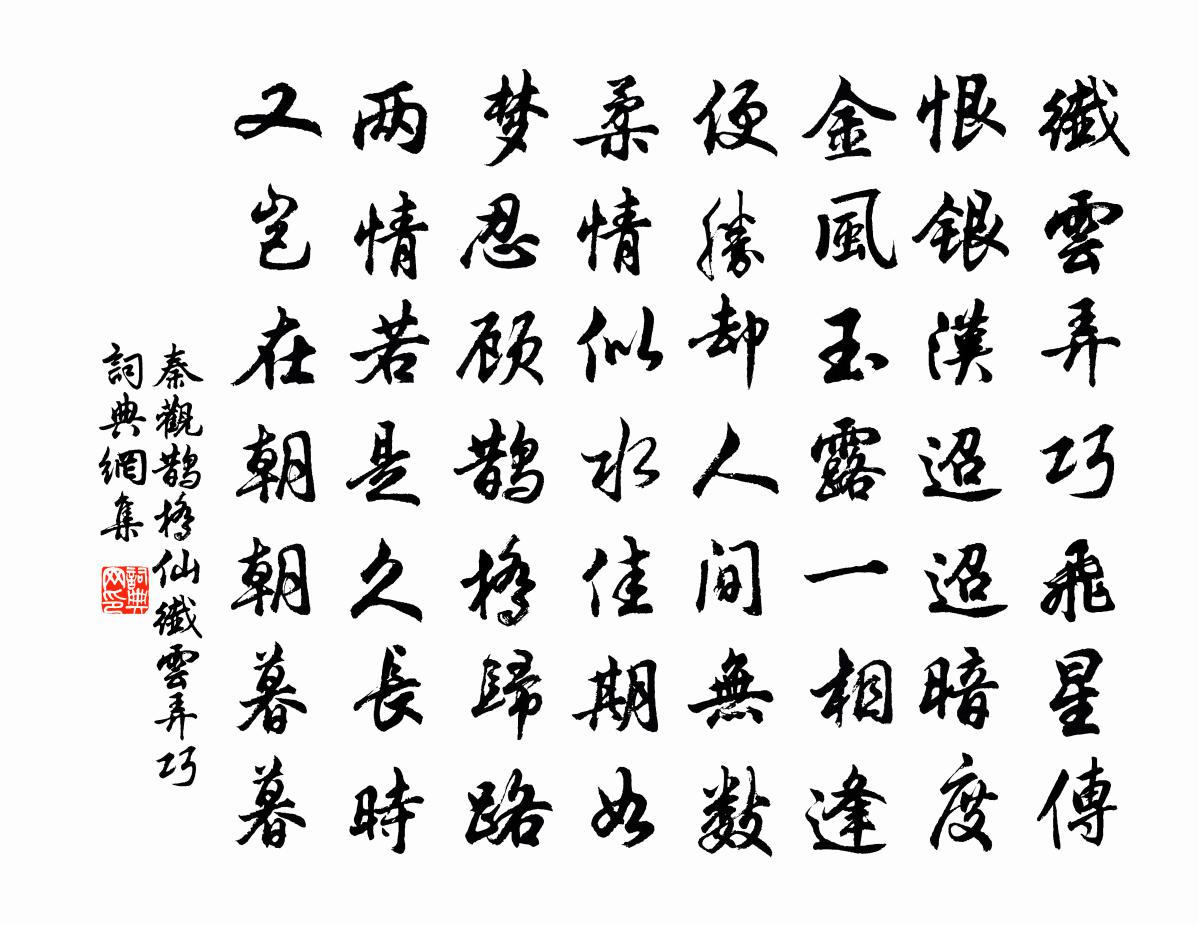 纖雲弄巧飛星傳
恨銀漢迢迢暗度
金風玉露一相逢
便勝却人間無數
柔情似水佳期如
梦忍顾鵲橋歸路
两情若是久長時
又岂在朝朝暮暮
秦觀鵲橋仙纖雲弄巧
詞典網集
詞典網印